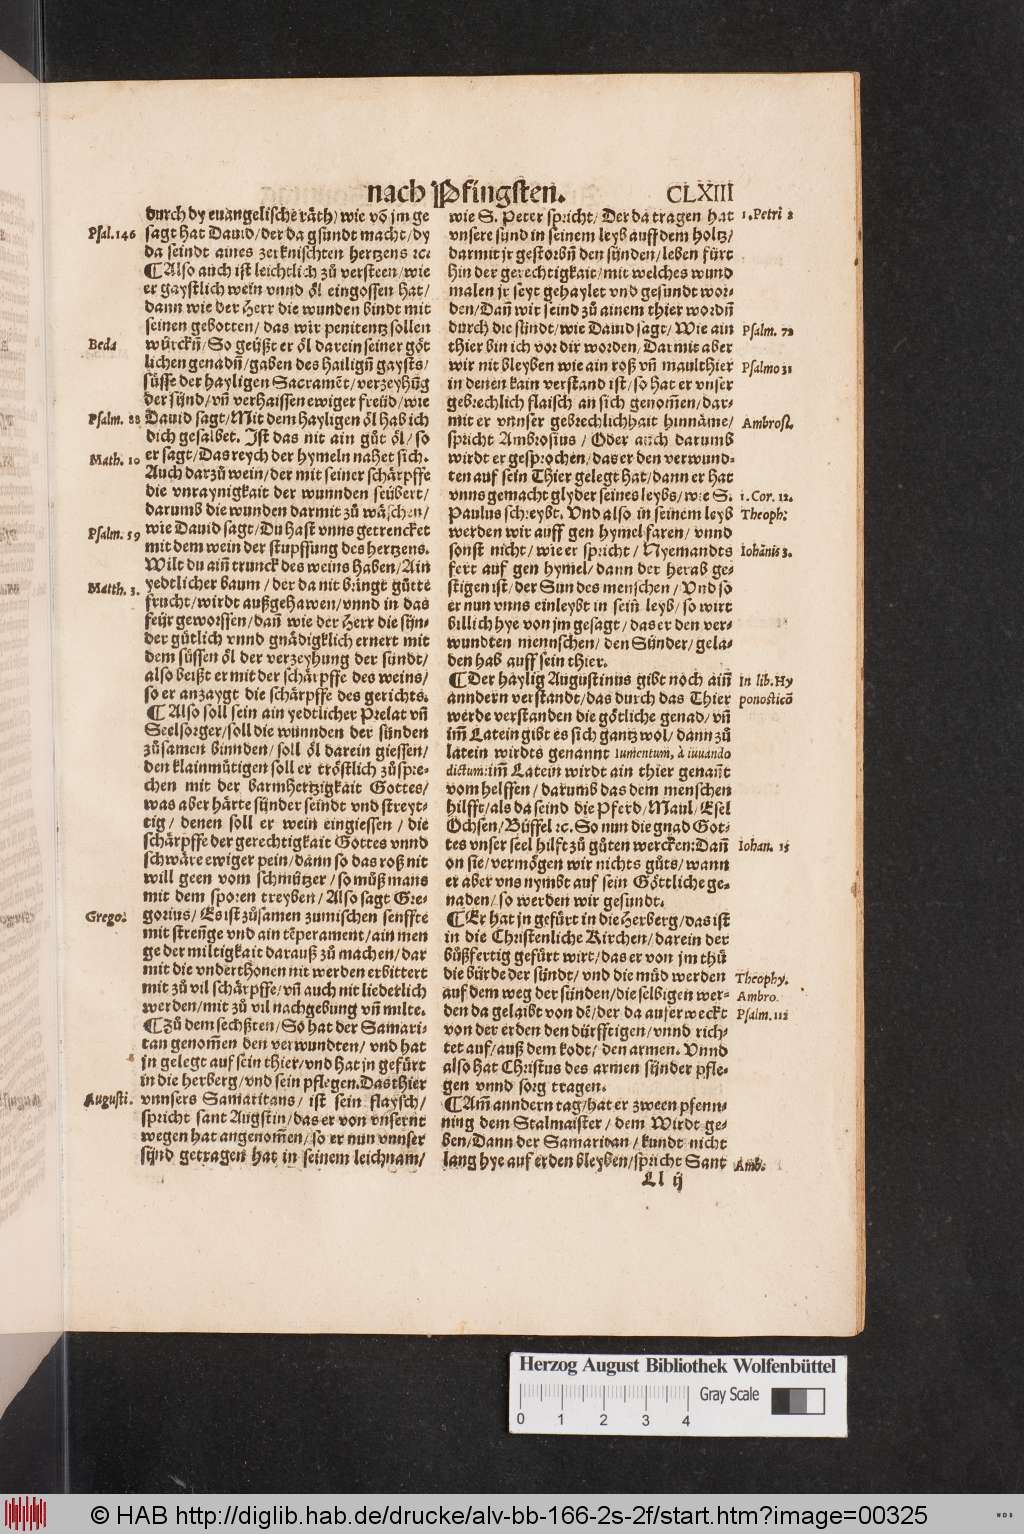 nach Pfingsten.
CLXIII
durch dy euangelische räth) wie võ jm ge
Psal. 146
sagt hat Dauid/der da gsundt macht/dy
da seindt aines zerknischten hertzens ꝛc.
¶Also auch ist leichtlich zů versteen/wie
er gaystlich wein vnnd öl eingossen hat/
dann wie der Herr die wunden bindt mit
seinen gebotten/ das wir penitentz sollen
Beda
würckñ/So geüßt er öl darein seiner göt
lichen genadñ/gaben des hailigñ gaysts/
süsse der hayligen Sacramẽt/verzeyhũg
der sünd/vñ verhaissen ewiger freüd/wie
Psalm. 88
Dauid sagt/Mit dem hayligen öl hab ich
dich gesalbet. Ist das nit ain gůt öl/so
Math. 10
er sagt/Das reych der hymeln nahet sich.
Auch darzů wein/der mit seiner schärpffe
die vnraynigkait der wunnden seübert/
darumb die wunden darmit zů wäschen/
Psalm. 59
wie Dauid sagt/Du hast vnns getrencket
mit dem wein der stupffung des hertzens.
Wilt du ainñ trunck des weins haben/Ain
Matth. 3.
yedtlicher baum/der da nit bringt gůtte
frucht/wirdt außgehawen/vnnd in das
feür geworffen/dañ wie der Herr die sün-
der gůtlich vnnd gnädigklich ernert mit
dem süssen öl der verzeyhung der sündt/
also beißt er mit der schärpffe des weins/
so er anzaygt die schärpffe des gerichts.
¶Also soll sein ain yedtlicher Prelat vñ
Seelsorger/soll die wunnden der sünden
zůsamen binnden/soll öl darein giessen/
den klainmütigen soll er tröstlich zůspre-
chen mit der barmhertzigkait Gottes/
was aber härte sünder seindt vnd streyt-
tig/ denen soll er wein eingiessen/die
schärpffe der gerechtigkait Gottes vnnd
schwäre ewiger pein/dann so das roß nit
will geen vom schmützer/so můß mans
mit dem sporen treyben/Also sagt Gre-
Grego:
gorius/Es ist zůsamen zumischen senffte
mit strenge vnd ain tẽperament/ain men
ge der miltigkait darauß zů machen/dar
mit die vnderthonen nit werden erbittert
mit zů vil schärpffe/vñ auch nit liederlich
werden/mit zů vil nachgebung vñ milte.
¶Zů dem sechßten/So hat der Samari-
tan genom̃en den verwundten/ vnd hat
jn gelegt auf sein thier/vnd hat jn gefürt
in die herberg/vnd sein pflegen. Das thier
Augusti.
vnnsers Samaritans/ ist sein flaysch/
spricht sant Augstin/das er von vnsernt
wegen hat angenom̃en/so er nun vnnser
sünd getragen hat in seinem leichnam/
wie S. Peter spricht/Der da tragen hat
1. Petri 2
vnsere sünd in seinem leyb auff dem holtz/
darmit jr gestorbñ den sünden/leben fürt
hin der gerechtigkait/mit welches wund
malen jr seyt gehaylet vnd gesundt wor-
den/Dañ wir seind zů ainem thier wordñ
durch die sündt/wie Dauid sagt/Wie ain
Psalm. 72
thier bin ich vor dir worden/Darmit aber
wir nit bleyben wie ain roß vñ maulthier
Psalmo 31
in denen kain verstand ist/so hat er vnser
gebrechlich flaisch an sich genom̃en/dar-
mit er vnnser gebrechlichhait hinnäme/
Ambros.
spricht Ambrosius/ Oder auch darumb
wirdt er gesprochen/das er den verwund-
ten auf sein Thier gelegt hat/dann er hat
vnns gemacht glyder seines leybs/wie S.
1. Cor. 12.
Paulus schreybt. Vnd also in seinem leyb
Theoph:
werden wir auff gen hymel faren/ vnnd
sonst nicht/wie er spricht/Nyemandts
Iohãnis 3.
fert auf gen hymel/dann der herab ge-
stigen ist/der Sun des menschen/Vnd so
er nun vnns einleybt in seiñ leyb/so wirt
billich hye von jm gesagt/das er den ver-
wundten mennschen/den Sünder/gela-
den hab auff sein thier.
¶Der haylig Augustinus gibt noch aiñ
In lib. Hy
anndern verstandt/das durch das Thier
ponosticõ
werde verstanden die götliche genad/vñ
im̃ Latein gibt es sich gantz wol/dann zů
latein wirdts genannt iumentum, à iuuando
dictum: im̃ Latein wirdt ain thier genañt
vom helffen/darumb das dem menschen
hilfft/als da seind die Pferd/Maul/Esel
Ochsen/Büffel ꝛc. So nun die gnad Got-
tes vnser seel hilft zů gůten wercken: Dañ
Iohan. 15
on sie/vermögen wir nichts gůts/wann
er aber vns nymbt auf sein Göttliche ge-
naden/so werden wir gesundt.
¶Er hat jn gefürt in die Herberg/das ist
in die Christenliche Kirchen/darein der
bůßfertig gefürt wirt/das er von jm thů
die bürde der sündt/vnd die müd werden
Theophy.
auf dem weg der sünden/die selbigen wer-
Ambro.
den da gelaibt von dẽ/der da auferweckt
Psalm. 112
von der erden den dürfftigen/vnnd rich-
tet auf/auß dem kodt/den armen. Vnnd
also hat Christus des armen sünder pfle-
gen vnnd sorg tragen.
¶Am̃ anndern tag/hat er zween pfenn-
ning dem Stalmaister/dem Wirdt ge-
ben/Dann der Samaritan/kundt nicht
lang hye auf erden bleyben/spricht Sant
Amb.
Ll ij
Herzog August Bibliothek Wolfenbüttel
Gray Scale
0 1 2 3 4
© HAB http://diglib.hab.de/drucke/alv-bb-166-2s-2f/start.htm?image=00325